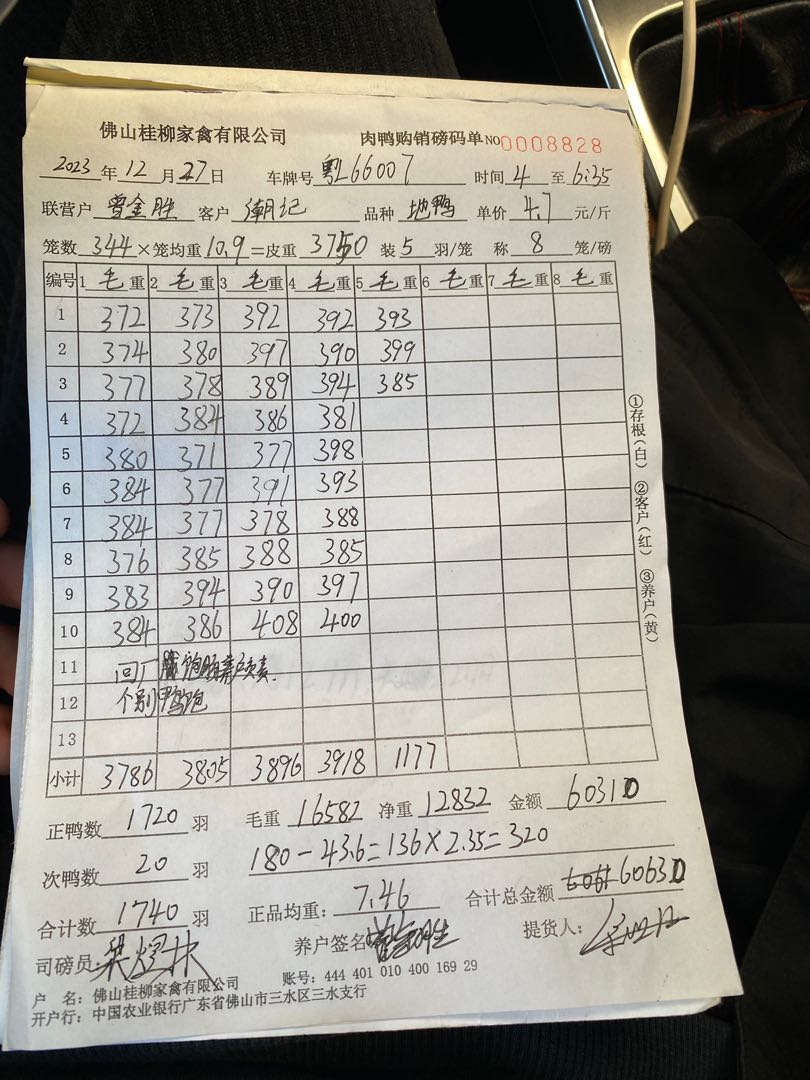 佛山桂柳家禽有限公司 肉鸭购销磅码单 NO 0008828
2023 年 12 月 27 日 车牌号 粤L66007 时间 4 至 6:35
联营户 曾金胜 客户 潮记 品种 地鸭 单价 4.7 元/斤
笼数 344 ×笼均重 10.9 =皮重 3750 装 5 羽/笼 称 8 笼/磅
编号 1 毛 重 2 毛 重 3 毛 重 4 毛 重 5 毛 重 6 毛 重 7 毛 重 8 毛 重
1 372 373 392 392 393
2 374 380 397 390 399
3 377 378 389 394 385
4 372 384 386 381
5 380 371 377 398
6 384 377 391 393
7 384 377 378 388
8 376 385 388 385
9 383 394 390 397
10 384 386 408 400
11 回厂 饱 养户负责.
12 个别鸭饱
13
小计 3786 3805 3896 3918 1177
正鸭数 1720 羽 毛重 16582 净重 12832 金额 60310
次鸭数 20 羽 180-43.6=136×2.35=320
合计数 1740 羽 正品均重: 7.46 合计总金额 60630
司磅员: 养户签名 曾金胜 提货人:
户 名: 佛山桂柳家禽有限公司 账号: 444 401 010 400 169 29
开户行: 中国农业银行广东省佛山市三水区三水支行
①存根(白) ②客户(红) ③养户(黄)